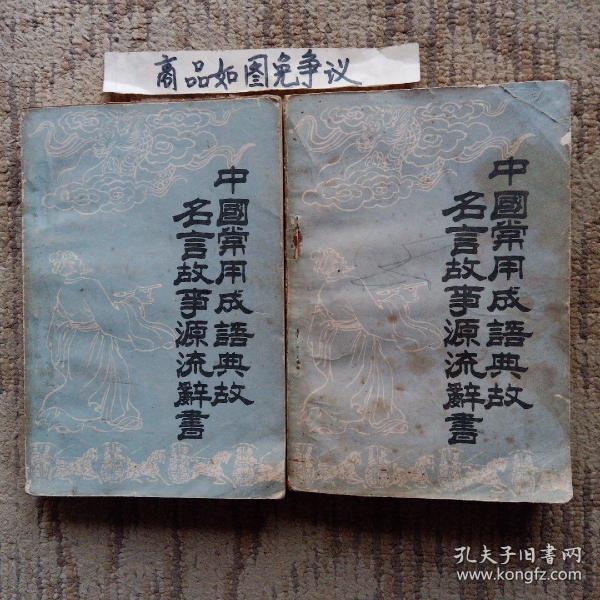 商品如图免争议
中國常用成語典故
名言故事源流辭書
中國常用成語典故
名言故事源流辭書
孔夫子旧书网
www.kongfz.com